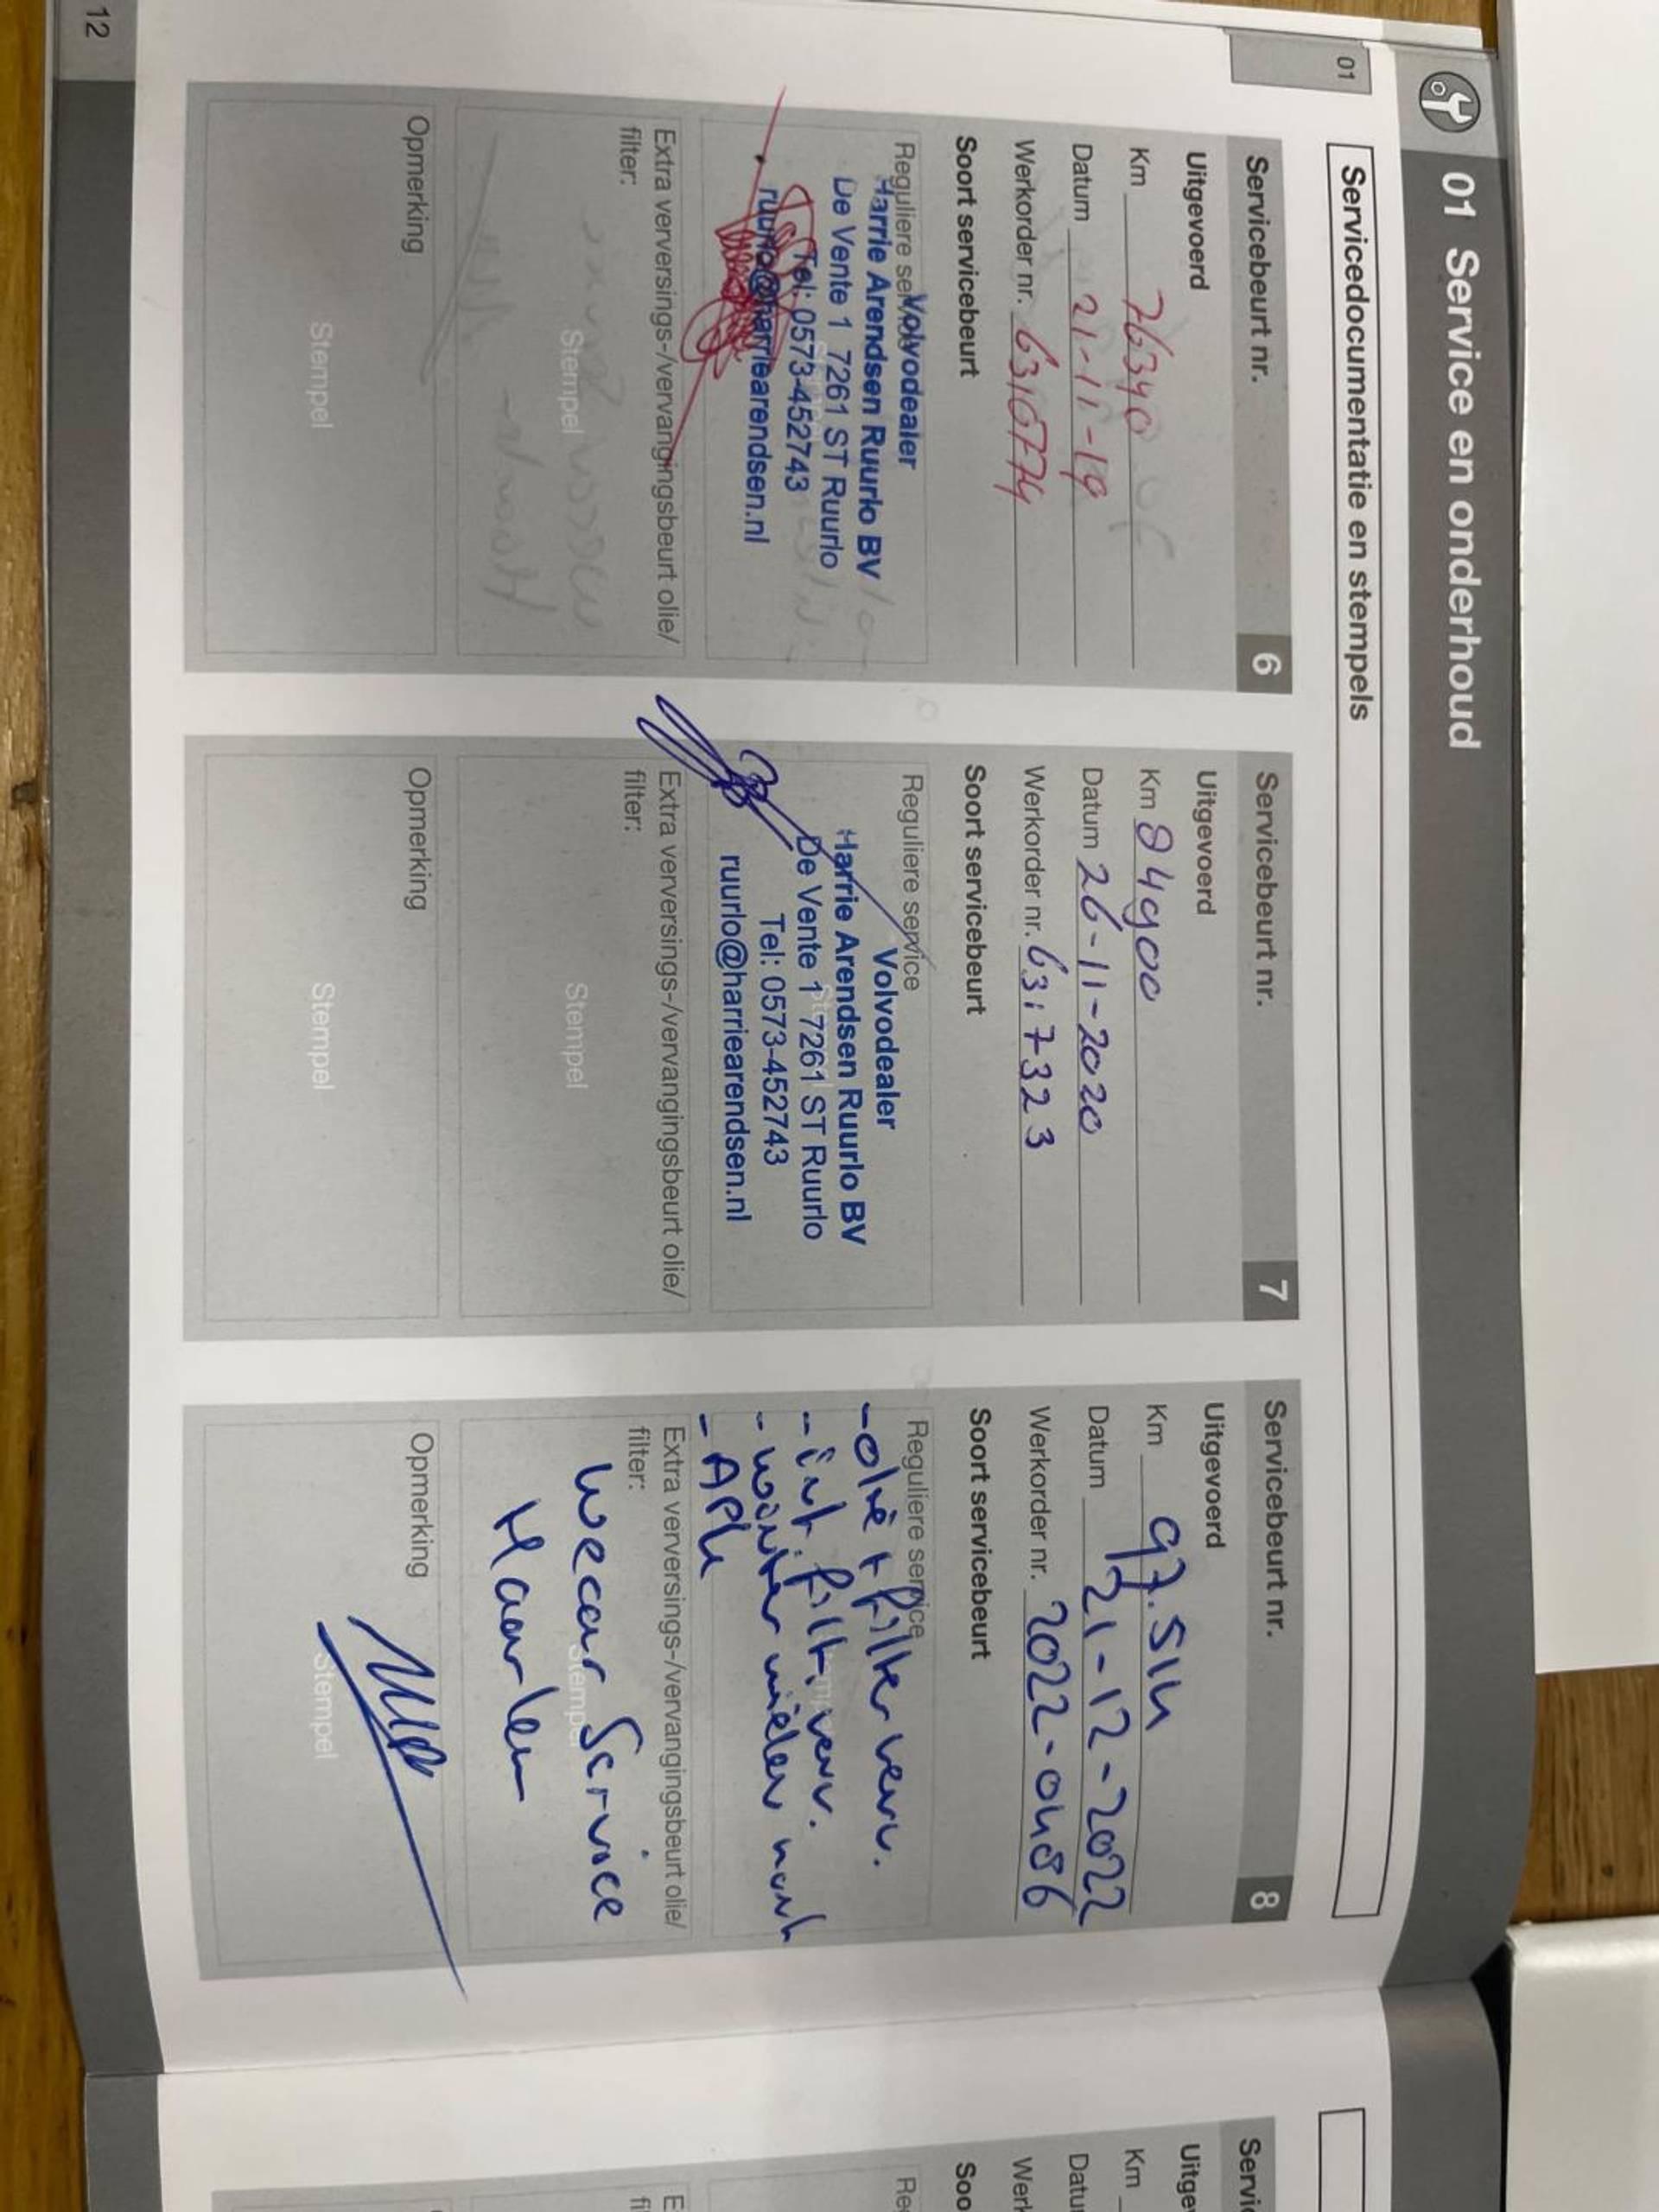 01 Service en onderhoud
01
Servicedocumentatie en stempels
Servicebeurt nr. 6
Uitgevoerd
Km 76340
Datum 21-11-19
Werkorder nr. 6316774
Soort servicebeurt
Reguliere service
Volvodealer
Harrie Arendsen Ruurlo BV
De Vente 1 7261 ST Ruurlo
Tel: 0573-452743
ruurlo@harriearendsen.nl
Extra verversings-/vervangingsbeurt olie/
filter:
Stempel
Opmerking
Stempel
Servicebeurt nr. 7
Uitgevoerd
Km 84900
Datum 26-11-2020
Werkorder nr. 6317323
Soort servicebeurt
Reguliere service
Volvodealer
Harrie Arendsen Ruurlo BV
De Vente 1 7261 ST Ruurlo
Tel: 0573-452743
ruurlo@harriearendsen.nl
Extra verversings-/vervangingsbeurt olie/
filter:
Stempel
Opmerking
Stempel
Servicebeurt nr. 8
Uitgevoerd
Km 97.514
Datum 21-12-2022
Werkorder nr. 2022-0486
Soort servicebeurt
Reguliere service
- olie + filter verv.
- int. filt. verv.
- winter wielen
- APK
Extra verversings-/vervangingsbeurt olie/
filter:
Wecar Service
Haarlem
Stempel
Opmerking
Stempel
12
Servic
Uitgev
Km
Datu
Werk
Soo
Re
E
fi